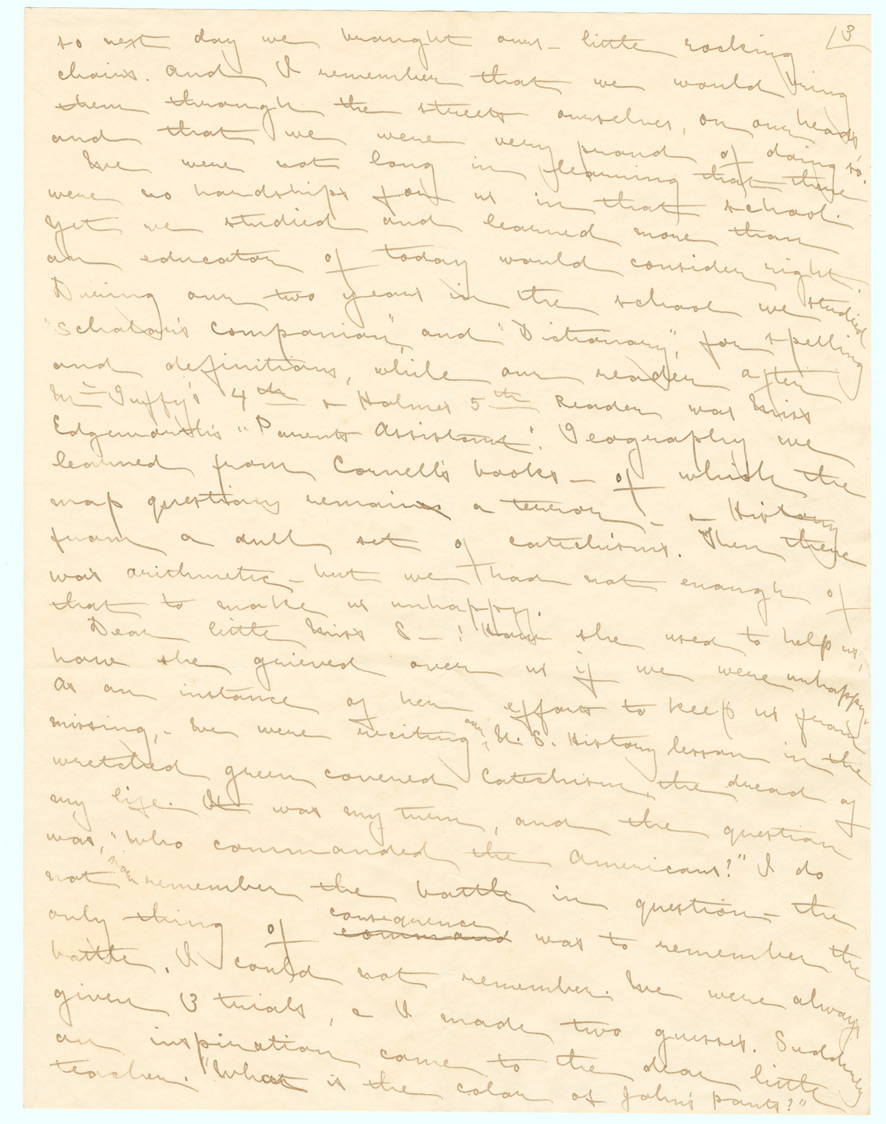 3
so next day we brought ours – little rocking
chairs. And I remember that we would bring
them through the streets ourselves, on our heads
and that we were very proud of doing so.
We were not long in learning that there
were no hardships for us in that school.
Yet we studied and learned more than
an educator of today would consider right.
During our two years in the school we studied
"Scholar's Companion", and "Dictionary", for spelling
and definitions, while our reader after
McGuffy's 4th & Holmes 5th Reader was Miss
Edgeworth's "Parents Assistant". Geography we
learned from Cornell's books – of which the
map questions remain a terror – & History
from a dull set of catechisms. Then there
was arithmetic – but we had not enough of
that to make us unhappy.
Dear little Miss S–! How she used to help us,
how she grieved over us if we were unhappy.
As an instance of her efforts to keep us from
missing, – We were reciting our U.S. History lesson in the
wretched green covered Catechism, the dread of
my life. It was my turn, and the question
was, "Who commanded the Americans?" I do
not now remember the battle in question – the
only thing of consequence was to remember the
battle. I could not remember. We were always
given 3 trials, & I made two guesses. Suddenly
an inspiration came to the dear little
teacher. "What is the color of John's pants?"